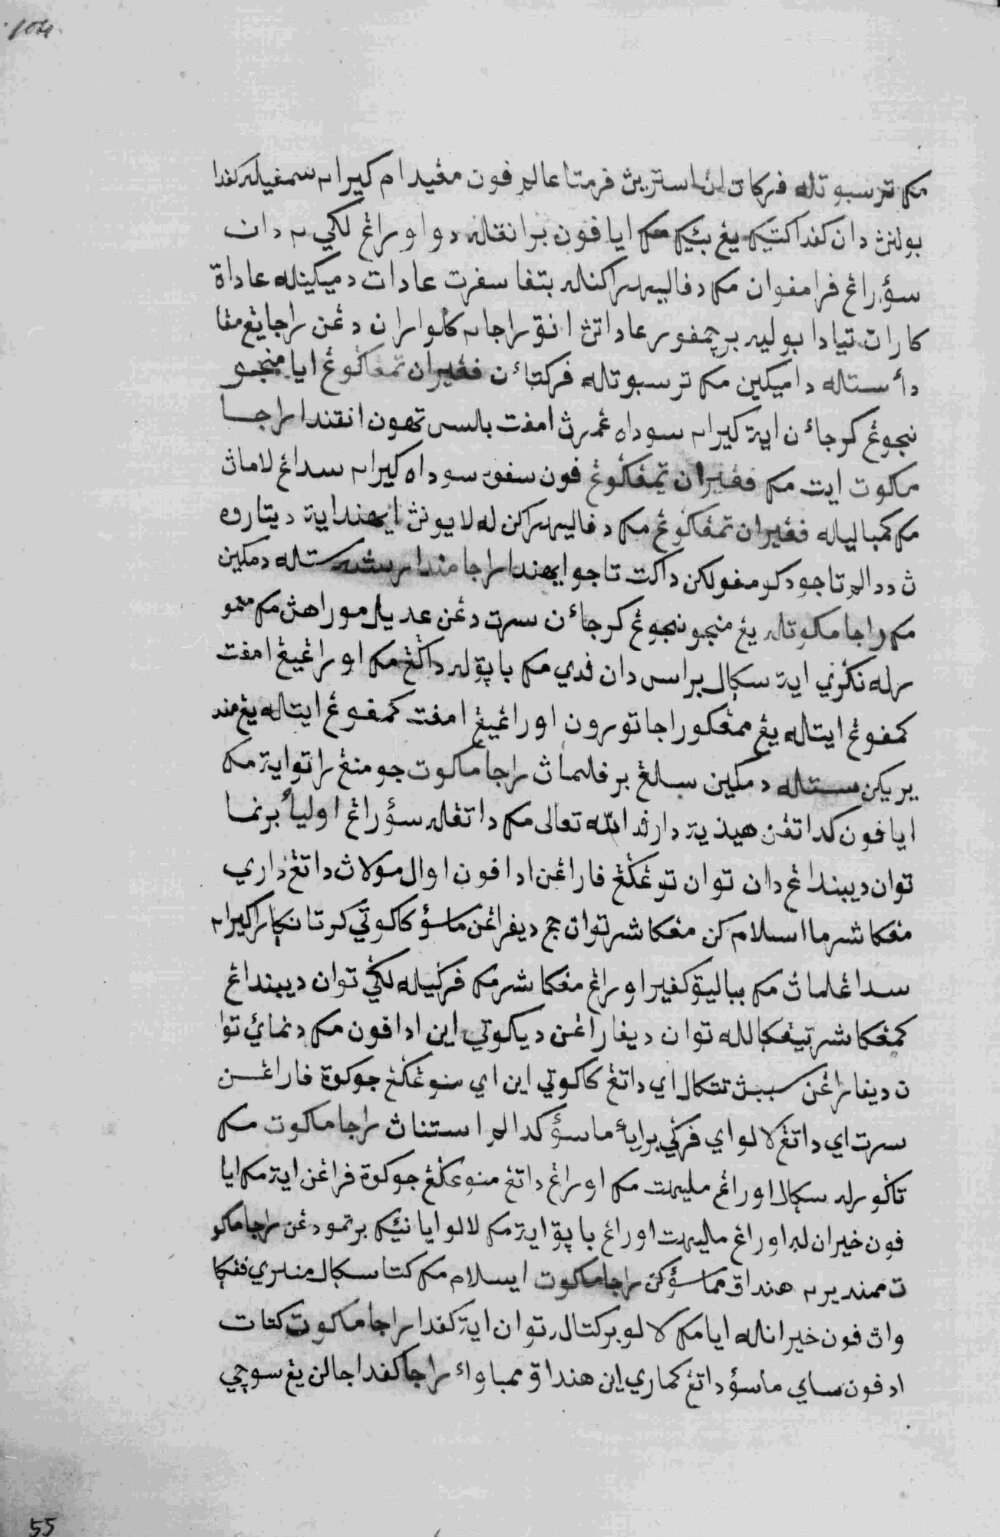 104
مک ترسبوتله فرکاتان استرين فرمتا عالم فون مڠيدام کيرا٢ سمفيله کفدا
بولنڽ دان کفد اکتيک يڠ بئيک مک اي افون برانقله دوا اورڠ لکي٢ دان
سؤراڠ فرامفوان مک دفاليهراکنله بتفا سفرت عادات دميکينله عاداة
کارات تيادا بوليه برچمفور عاداتڽ انق راجا٢ کلوارا ن دڠن راجا يڠ مڤا
دأستله داميکين مک ترسبوتله فرکتاءن فڠيران تمڠکوڠ ايا منجو
نجوڠ کرجاءن ايت کيرا٢ سوداه عمرڽ امفت بالس تهون انقندا راجا
مکوت ايت مک فڠيران تمڠکوڠ فون سفوه سوداه کيرا٢ سداڠ لاماڽ
مک کمباليله فڠيران تمڠکوڠ مک دفاليهراکن له لايونڽ ايهندا ايت ديتاروه
ڽ ددالم تاجو دکومفولکن داکت تاجو ايهندا راجا مندارشه ستله دمکين
مک راجا مکوتله يڠ منجونجوڠ کرجاءن سرت دڠن عديل موراهڽ مک ممو
رله نکري ايت سکال براس دان فدي مک باپقله داڬڠ مک اوراڠيڠ امفت
کمفوڠ ايتاله يڠ ممڠکو راجا تورون اوراڠيڠ امفت کمفوڠ ايتاله يڠ مند
يريکن ستله دمکين سلڠ برفلماڽ راجا مکوت جومنڠ راتو ايت مک
ايافون کداتڠن هيدية دارفد الله تعالى مک داتڠله سؤراڠ اوليأ برنما
توان ديبنداڠ دان توان توڠکڠ فاراڠن ادافون اوال مولاڽ داتڠ داري
مڠکاشر ما اسلام کن مڠکاشر توان جج ديفراڠن ماسؤ کاکوتي کرتانکارا کيرا٢
سداڠ لماڽ مک بباليق کفير اوراڠ مڠکاشر مک فرکيله لکي توان ديبنداڠ
کمڠکاشر تيڠکالله توان ديفاراڠن ديکوتي اين ادافون مک دنمائي توا
ن ديفاراڠن سببڽ تتکال اي داتڠ کاکوتي اين اي منوڠکڠ جوکوة فاراڠن
سرت اي داتڠ لالو اي فرکي برايأ ماسؤ کدالم استناڽ راجا مکوت مک
تاکورله سکال اوراڠ مليهت مک اوراڠ داتڠ منوڠکڠ جوکوة فراڠن ايت مک ايا
فون خيران له اوراڠ ماليهت اوراڠ باپق ايت مک لالو ايا نئيک برتمو دڠن راجا مکو
ت ممنديري٢ هنداق مماسؤکن راجا مکوت ايسلام مک کتا سکال منتري فڠکا
واڽ فون خيرانله ايا مک لالو برکتاله توان ايت کفدا راجا مکوت کتاڽ
ادفون ساي ماسؤ داتڠ کماري اين هنداق ممباواء راجا کفدا جالن يڠ سوچي
55